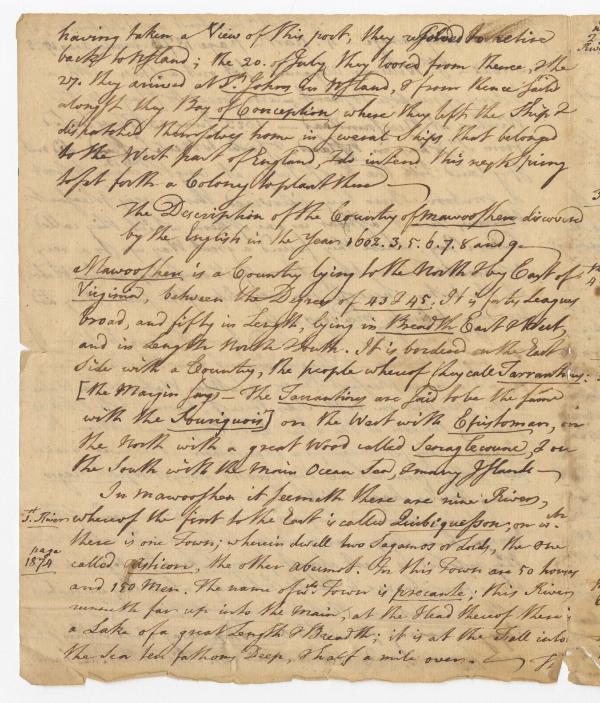 having taken a View of this port, they resolved to retire
back to Nfland; the 20. of July they loosed from thence, & the
27. they arrived at St. Johns in Nfland, & from thence sail'd
alongst they Bay of Conception where they left the Ship &
dispatched themselves home in several Ships that belonged
to the West part of England, & do intend this next spring
to set forth a Colony to plant there —
The Description of the Country of Mawooshen discovered
by the English in the Years 1602. 3. 5. 6. 7. 8 and 9 —
Mawooshen is a Country lying to the North & by East of
Virginia, between the Degrees of 43 & 45. It is forty Leagues
broad, and fifty in Length, lying in Breadth East & West,
and in Length North & South. It is bordered on the East
Side with a Country, the people whereof they call Tarrantins:
[the Margin says — the Tarrantines are said to be the same
with the Souriquois] on the West with Epistoman, on
the North with a great Wood called Senaglecoune, & on
the South with the main Ocean Sea, & many Islands —
In Mawooshen it seemeth there are nine Rivers,
1st. River whereof the first to the East is called Quibiquesson; on wh.
there is one Town; wherein dwell two Sagamos or Lords, the one
page called Asticon, the other Abermot. In this Town are 50 houses
1874 and 150 Men. The name of wh. Town is precante; this River
runneth far up into the Main, at the Head thereof there is
a Lake of a great Length & Breadth; it is at the Fall into
the Sea ten fathoms Deep, & half a mile over. —